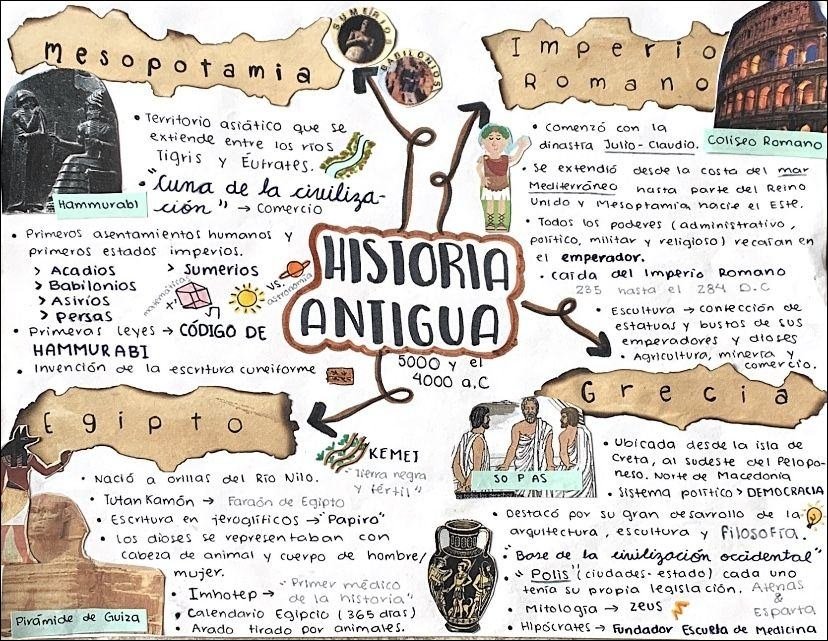 Mesopotamia
SUMERIOS
BABILONIOS
Hammurabi
• Territorio asiático que se
extiende entre los ríos
Tigris y Éufrates.
• "Cuna de la civiliza-
ción" → Comercio
• Primeros asentamientos humanos y
primeros estados imperios.
> Acadios
> Sumerios
> Babilonios
> Asirios
> Persas
matemáticas
vs.
astronomía
• Primeras leyes → CÓDIGO DE
HAMMURABI
• Invención de la escritura cuneiforme
HISTORIA
ANTIGUA
5000 y el
4000 a.C
Imperio
Romano
Coliseo Romano
• Comenzó con la
dinastía Julio-Claudio.
• Se extendió desde la costa del mar
Mediterráneo hasta parte del Reino
Unido y Mesoptamia hacie el Este.
• Todos los poderes (administrativo,
político, militar y religioso) recaían en
el emperador.
• Caída del Imperio Romano
235 hasta el 284 D.C
• Escultura → confección de
estatuas y bustos de sus
emperadores y dioses
• Agricultura, minería y
comercio.
Egipto
KEMET
"Tierra negra
y fértil"
• Nació a orillas del Río Nilo.
• Tutan Kamón → Faraón de Egipto
• Escritura en jeroglíficos → "Papiro"
• Los dioses se representaban con
cabeza de animal y cuerpo de hombre/
mujer.
• Imhotep → "Primer médico
de la historia"
• Calendario Egipcio (365 días)
• Arado tirado por animales.
Pirámide de Guiza
Grecia
SO P AS
• Ubicada desde la isla de
Creta, al sudeste del Pelopo-
neso. Norte de Macedonia
• Sistema político > DEMOCRACIA
• Destacó por su gran desarrollo de la
arquitectura, escultura y filosofía.
• "Base de la civilización occidental"
• "Polis" (ciudades-estado) cada uno
tenía su propia legislación.
Atenas
&
Esparta
• Mitología → ZEUS
• Hipócrates → Fundador Escuela de Medicina